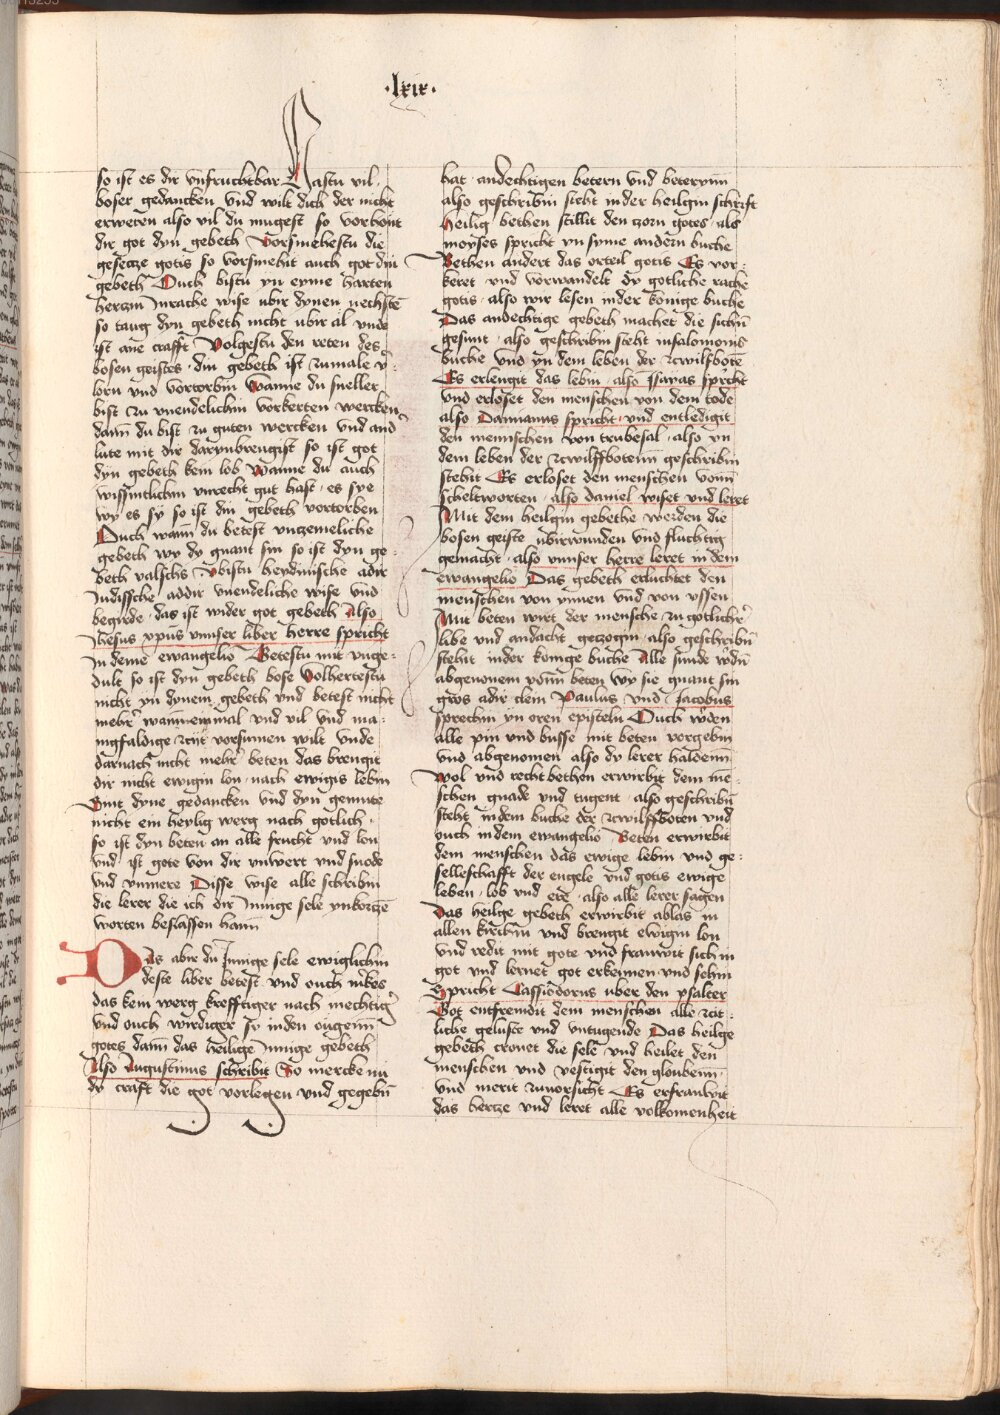 ·lxix·
so ist es dir vnfruchtbar Hastu vil
boser gedancken vnd wilt dich der nicht
erweren also vil du mugest so vorbont
dir got dyn gebeth Vorsmehestu die
gesecze gotis so vorsmehit auch got din
gebeth Ouch bistu yn eyme harten
herczin Inrache wise ubir dynen nechstē
so taug dyn gebeth nicht ubir al vnde
ist ane crafft Volgestu den reten des
bosen geistes · din gebeth ist zumale v̄-
lorn vnd vortorbin Wanne du sneller
bist zu vnendelichin vorkerten wercken
dann du bist zu guten wercken vnd and
lute mit dir darynbrengist so ist got
dyn gebeth kem lob Wanne du auch
wissintlichin vnrecht gut hast · es sye
wy es sy so ist din gebeth vortorben
Ouch wann du betest vnczemeliche
gebeth wy dy gnant sin so ist dyn ge-
beth valschs Ubistu heydnische adir
Judissche addir vnendeliche wise vnd
begirde · das ist wider got gebeth Also
Jhesus xpus vnnser liber herre spricht
In deme ewangelio Betestu mit vnge-
dult so ist dyn gebeth bose Volhertestu
nicht yn dynem gebeth vnd betest nicht
mehr wannemmal vnd vil vnd ma-
nigfaldige zijt vorsumen wilt vnde
darnach nicht mehr beten das brengit
dir nicht ewigin lon · nach ewigis lebin
Sint dyne gedancken vnd dyn gemute
nicht ein heylig werg nach gotlich ·
so ist dyn beten an alle frucht vnd lon
vnd ist gote von dir vnwert vnd snode
vnd vnmere Disse wise alle schribin
die lerer die ich dir Innige sele ynkorczē
worten beslassen hann
Das abir du Innige sele ewiglichin
deste liber betest vnd ouch m̄kes
das kem werg krefftiger nach mechtiḡ
vnd ouch wirdiger sy inden ougenn
gotes dann das heilige Innige gebeth
Also Augustinus schribit So mercke nu
dy craft die got vorlegen vnd gegebn̄
hat · andechtigen betern vnd beterynn
also geschribin sticht inder heiligin schrift
Heilig bethen stillit den zorn gotes · als
moyses spricht yn syme andern buche
Bethen andert das orteil gotis Es vor-
keret vnd vorwandelt dy gotliche rache
gotis · also wir lesen inder konige buche
Das andechtige gebeth machet die sichn̄
gesunt · also geschribin steht insalomonis
buche vnd yn dem leben der zcwilfbotē
Es erlengit das lebin · also Jsayas spricht
vnd erloset den menschen von dem tode
also Damianus spricht · vnd entledigit
den mennschen von trubesal · also yn
dem leben der zcwilffbotenn geschribin
stehit Es erloset den menschen vonn
scheltworten · also daniel wiset vnd leret
Mit dem heilgin gebethe werden die
bosen geiste ubirwunden vnd fluchtig
gemacht · also vnnser herre leret in dem
ewangelio Das gebeth erluchtet den
menschen von ynnen vnd von vssen
Mit beten wirt der mensche zu gotlicher
libe vnd andacht geczogin · also geschribn̄
stehit inder konige buche Alle sunde w̄dn̄
abgenomen vonn beten wy sie gnant sin
gros adir clein Paulus vnd Jacobus
sprechin yn oren episteln Ouch w̄den
alle pin vnd busse mit beten vorgebin
vnd abgenomen also dy lerer haldenn
Wol vnd recht bethen erwirbit dem mē-
schen gnade vnd tugent · also geschribn̄
steht indem buche der zcwilffboten vnd
ouch indem ewangelio Beten erwirbit
dem menschen das ewige lebin vnd ge-
selleschafft der engele vnd gotis ewige
leben · lob vnd ere · also alle lerer sagen
Das heilge gebeth erwirbit ablas in
allen kirchin vnd brengit ewigin lon
vnd redit mit gote vnd frauwit sich in
got vnd lernet got erkennen vnd sehin
Spricht Cassiodorus uber den psalter
Got entfremdit dem menschen alle zit-
liche geluste vnd vntugende Das heilge
gebeth cronet die sele vnd heilet den
menschen vnd vestigit den glouben ·
vnd merit zuuorsicht Es erfrauwit
das hercze vnd leret alle volkomenheit